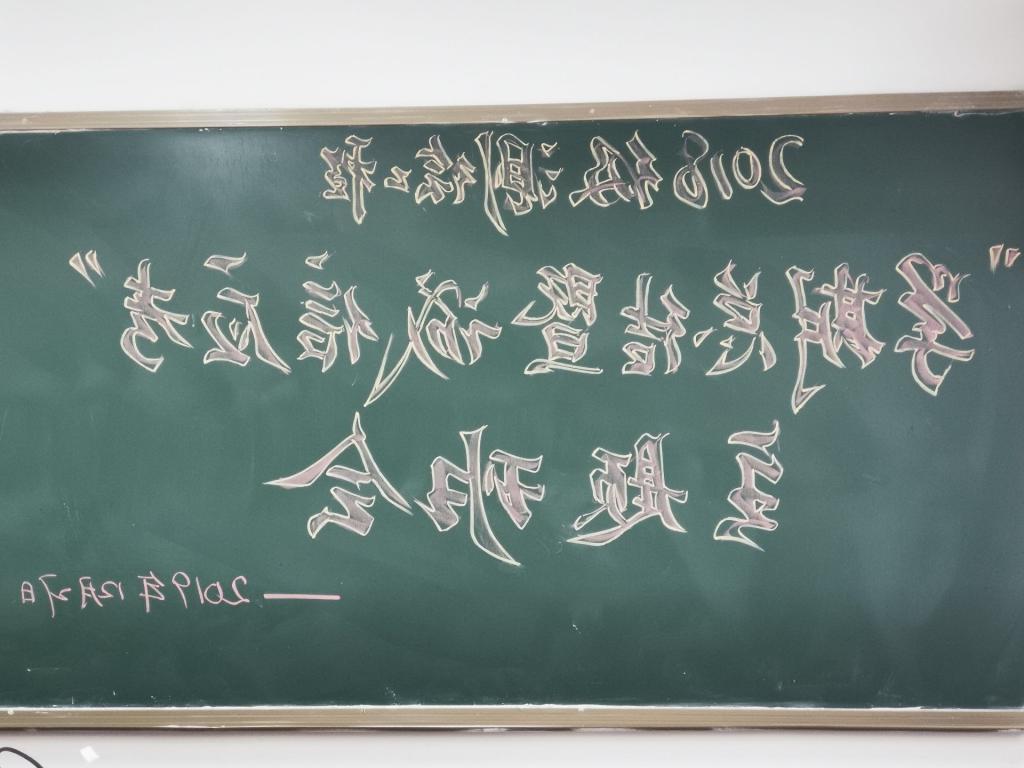 2018级测绘二班
“学期总结暨诚信应考”
主题班会
——2019年12月27日